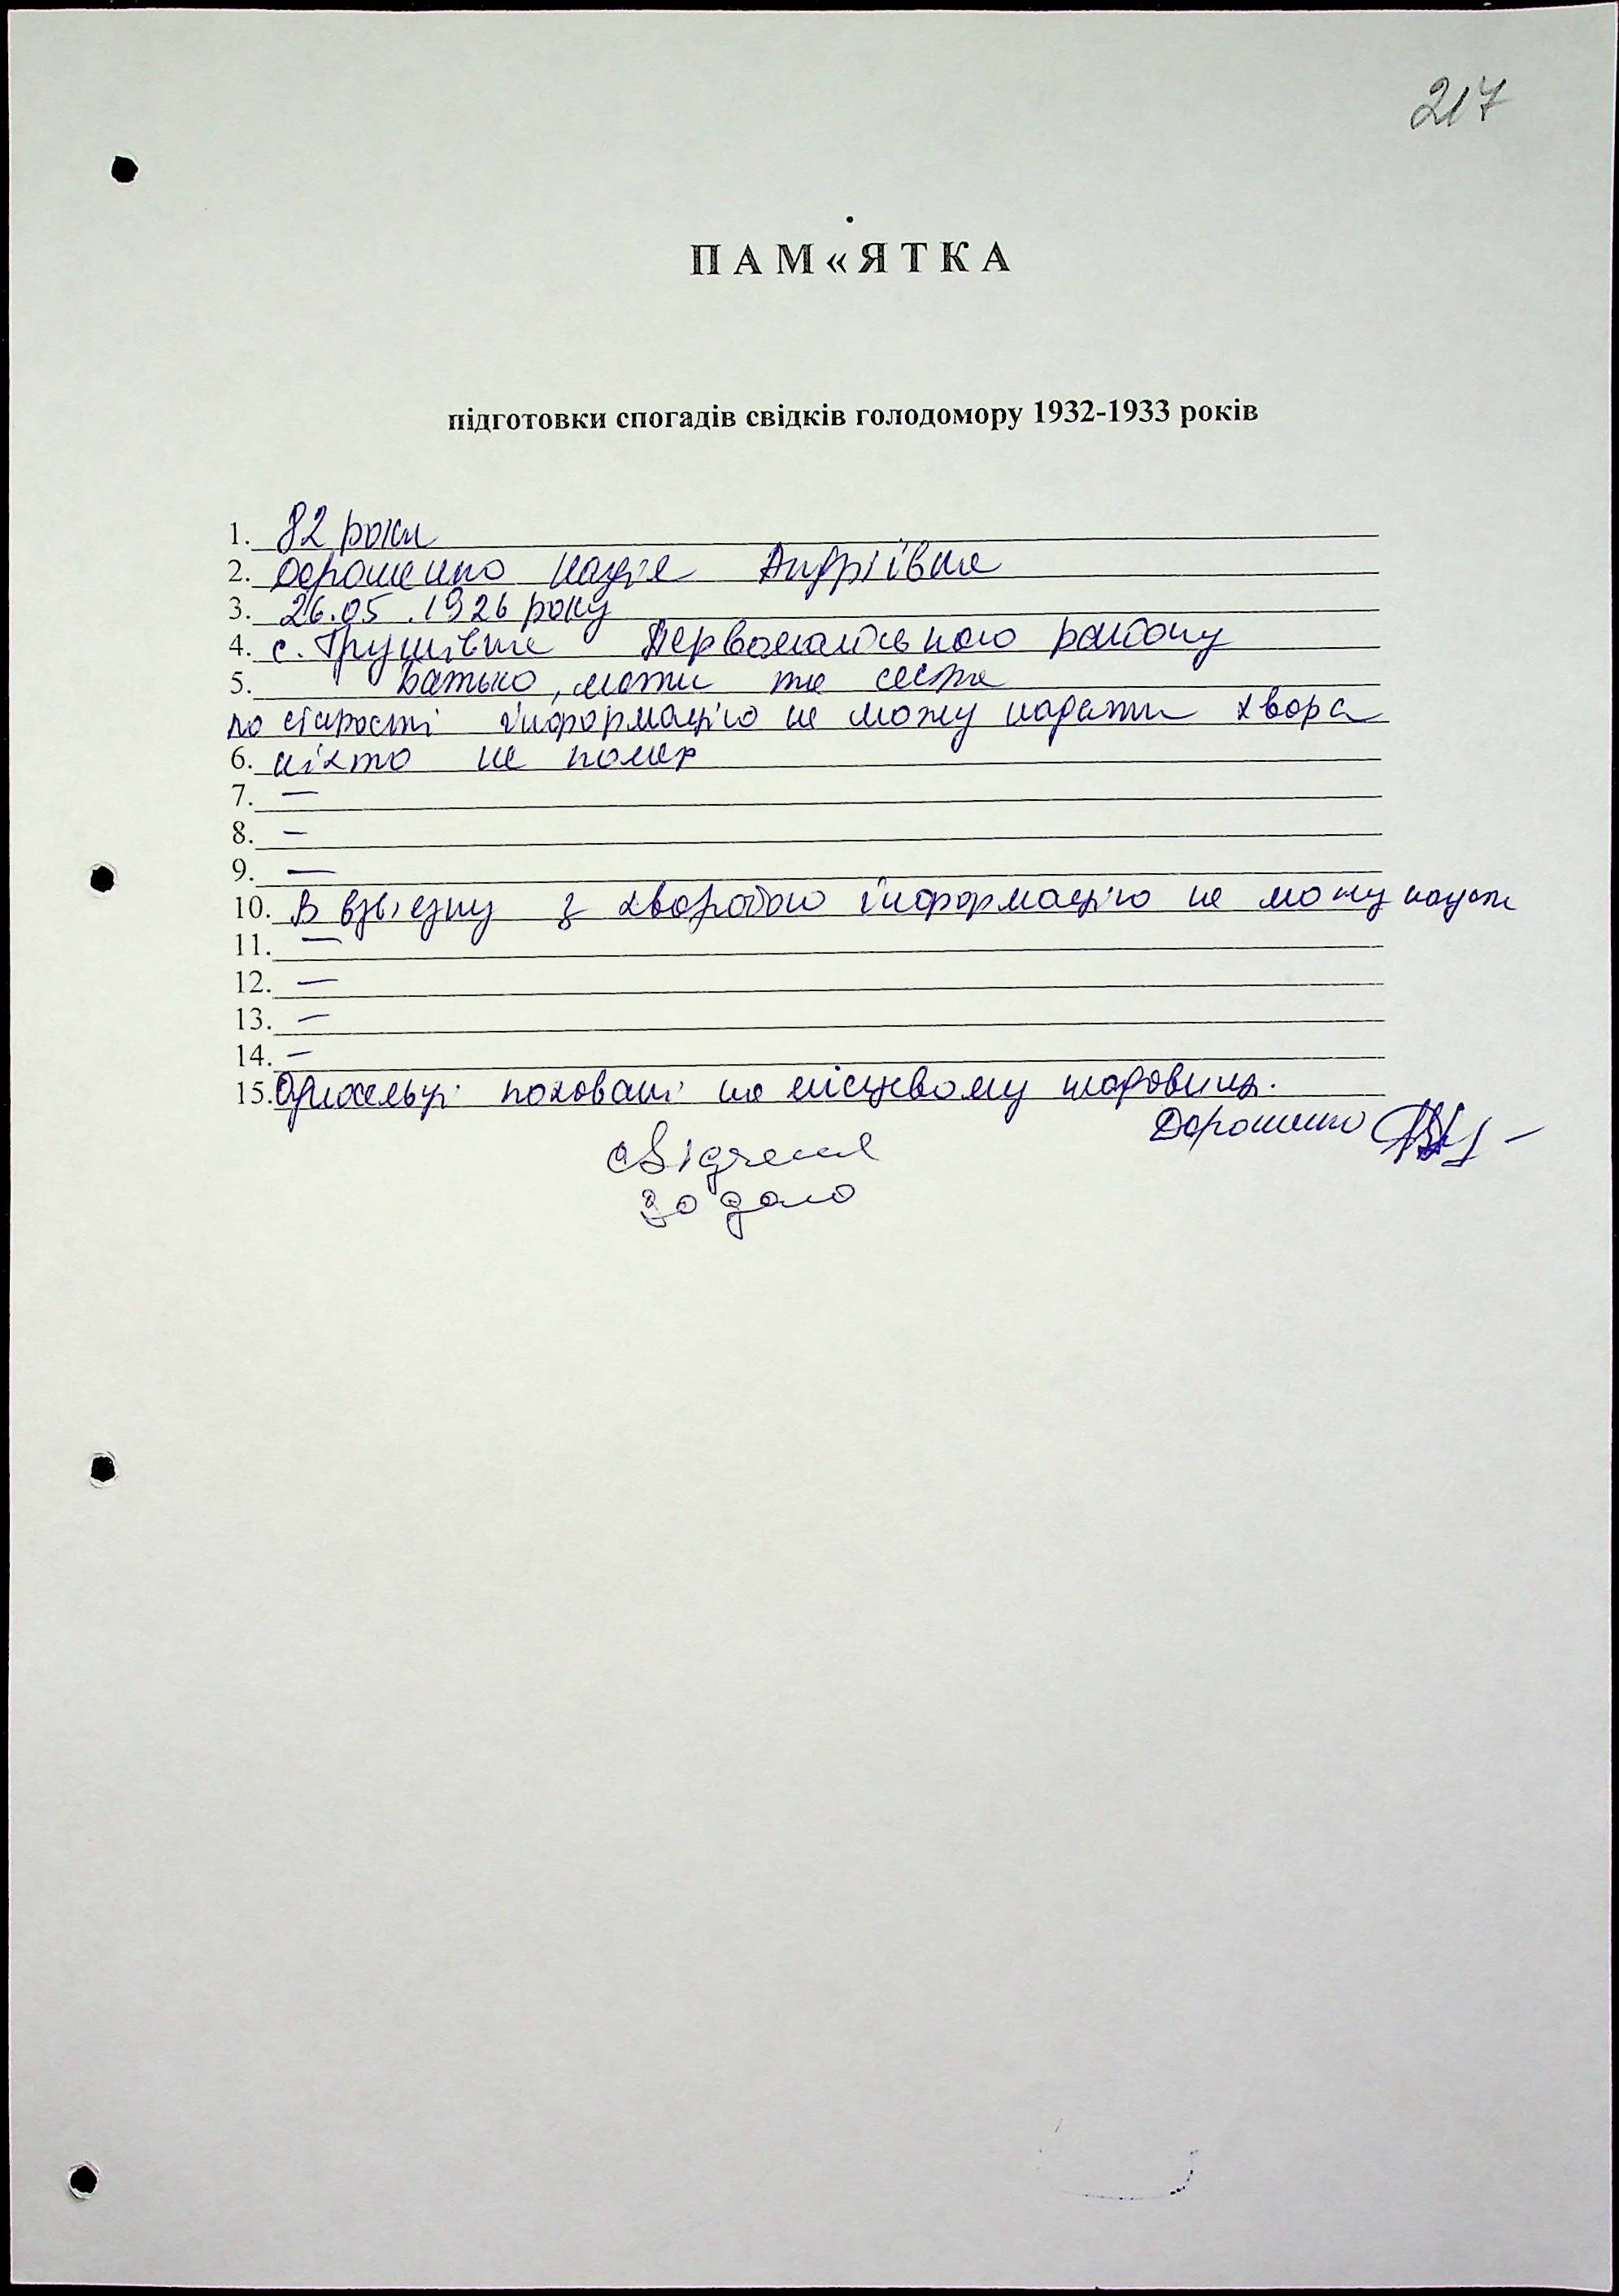 217
ПАМ«ЯТКА
підготовки спогадів свідків голодомору 1932-1933 років
1. 82 роки
2. Дорошенко Надія Андріївна
3. 26.05.1926 року
4. с. Грушівка Первомайського району
5. Батько, мати та сестра
по старості інформацію не можу надати хвора
6. ніхто не помер
7. —
8. —
9. —
10. В звьязку з хворобою інформацію не можу надати
11. —
12. —
13. —
14. —
15. Односельці поховані на місцевому кладовищі.
Дорошенко